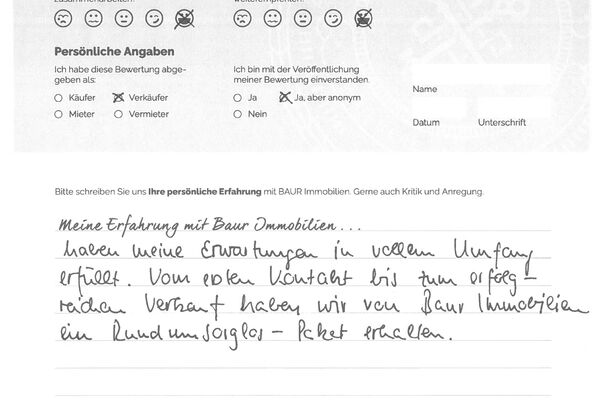 zusammenarbeiten.
weiterempfehlen.
Persönliche Angaben
Ich habe diese Bewertung abge-
geben als:
Käufer
Verkäufer
Mieter
Vermieter
Ich bin mit der Veröffentlichung
meiner Bewertung einverstanden.
Ja
Ja, aber anonym
Nein
Name
Datum
Unterschrift
Bitte schreiben Sie uns Ihre persönliche Erfahrung mit BAUR Immobilien. Gerne auch Kritik und Anregung.
Meine Erfahrung mit Baur Immobilien...
haben meine Erwartungen in vollem Umfang
erfüllt. Vom ersten Kontakt bis zum erfolg-
reichen Verkauf haben wir von Baur Immobilien
ein Rundumsorglos-Paket erhalten.